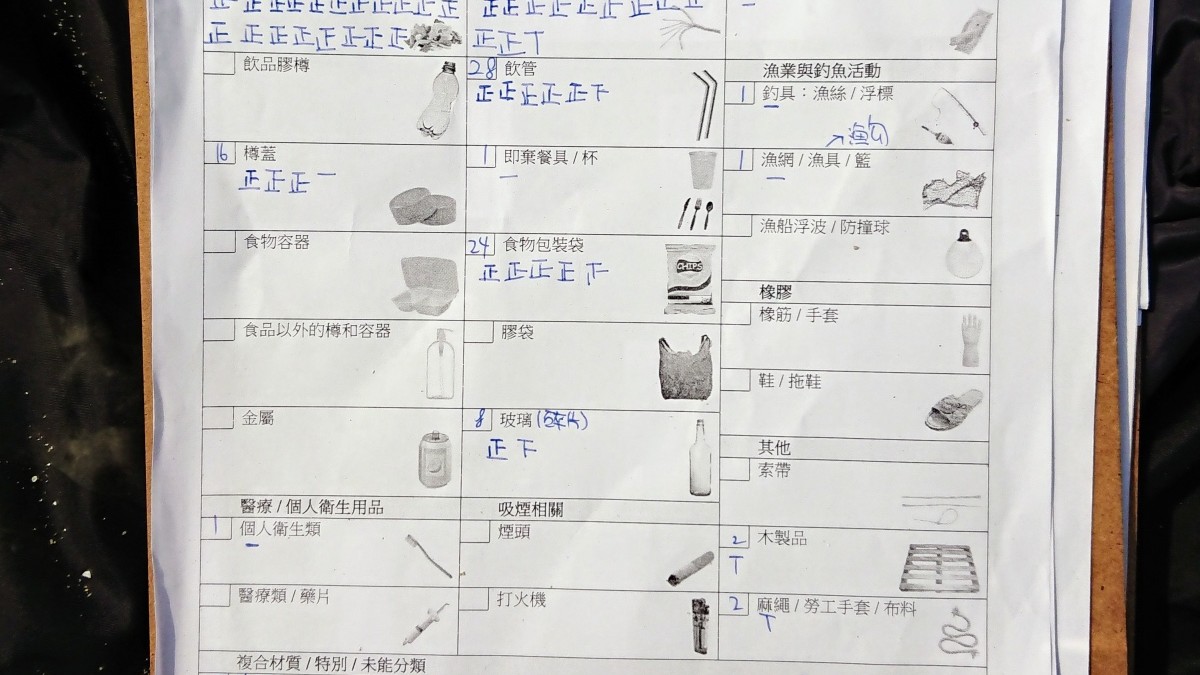 正 正正正正正正正正正
正 正正正正正正正
飲品膠樽
16 樽蓋
正正正一
食物容器
食品以外的樽和容器
金屬
醫療 / 個人衛生用品
1 個人衛生類
一
醫療類 / 藥片
複合材質 / 特別 / 未能分類
正正正正正正正正正
正正丅
28 飲管
正正正正正下
1 即棄餐具 / 杯
一
24 食物包裝袋
正正正正下
CHIPS
膠袋
8 玻璃 (碎片)
正下
吸煙相關
煙頭
打火機
一
漁業與釣魚活動
1 釣具：漁絲 / 浮標
一
↗漁鈎
1 漁網 / 漁具 / 籃
一
漁船浮波 / 防撞球
橡膠
橡筋 / 手套
鞋 / 拖鞋
其他
索帶
2 木製品
丅
2 麻繩 / 勞工手套 / 布料
丅